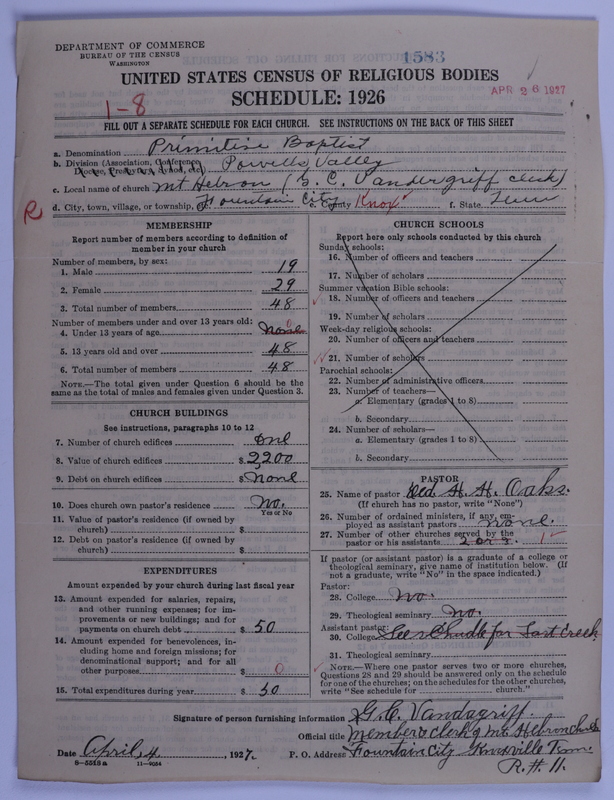 DEPARTMENT OF COMMERCE
BUREAU OF THE CENSUS
WASHINGTON
1583
UNITED STATES CENSUS OF RELIGIOUS BODIES
SCHEDULE: 1926
APR 26 1927
1-8
FILL OUT A SEPARATE SCHEDULE FOR EACH CHURCH. SEE INSTRUCTIONS ON THE BACK OF THIS SHEET
a. Denomination Primitive Baptist
b. Division (Association, Conference, Diocese, Presbytery, Synod, etc.) Powells Valley
c. Local name of church Mt Hebron (G. C. Vandergriff clerk)
R
d. City, town, village, or township, etc. Fountain City e. County Knox f. State Tenn
MEMBERSHIP
Report number of members according to definition of
member in your church
Number of members, by sex:
1. Male 19
2. Female 29
3. Total number of members 48
Number of members under and over 13 years old:
4. Under 13 years of age None 0
5. 13 years old and over 48
6. Total number of members 48
NOTE.—The total given under Question 6 should be the
same as the total of males and females given under Question 3.
CHURCH BUILDINGS
See instructions, paragraphs 10 to 12
7. Number of church edifices one
8. Value of church edifices $ 2,200
9. Debt on church edifices $ None
10. Does church own pastor's residence No.
Yes or No
11. Value of pastor's residence (if owned by
church) $
12. Debt on pastor's residence (if owned by
church) $
EXPENDITURES
Amount expended by your church during last fiscal year
13. Amount expended for salaries, repairs,
and other running expenses; for im-
provements or new buildings; and for
payments on church debt $ 50
14. Amount expended for benevolences, in-
cluding home and foreign missions; for
denominational support; and for all
other purposes $ 0
15. Total expenditures during year $ 50
CHURCH SCHOOLS
Report here only schools conducted by this church
Sunday schools:
16. Number of officers and teachers
17. Number of scholars
Summer vacation Bible schools:
18. Number of officers and teachers
19. Number of scholars
Week-day religious schools:
20. Number of officers and teachers
21. Number of scholars
Parochial schools:
22. Number of administrative officers
23. Number of teachers—
a. Elementary (grades 1 to 8)
b. Secondary
24. Number of scholars—
a. Elementary (grades 1 to 8)
b. Secondary
PASTOR
25. Name of pastor H. H. Oaks.
(If church has no pastor, write "None")
26. Number of ordained ministers, if any, em-
ployed as assistant pastors None.
27. Number of other churches served by the
pastor or his assistants 2 or 3. 1
If pastor (or assistant pastor) is a graduate of a college or
theological seminary, give name of institution below. (If
not a graduate, write "No" in the space indicated.)
Pastor:
28. College No.
29. Theological seminary No.
Assistant pastor:
30. College See schudle for Lost Creek
31. Theological seminary
NOTE.—Where one pastor serves two or more churches,
Questions 28 and 29 should be answered only on the schedule
for one of the churches; on the schedules for the other churches,
write "See schedule for church."
Signature of person furnishing information G. C. Vandagriff.
Official title Member & clerk of Mt Hebron Church
Date April, 4, 1927. P. O. Address Fountain City Knoxville Tenn.
8-5518a 11-9084
R. #. 11.